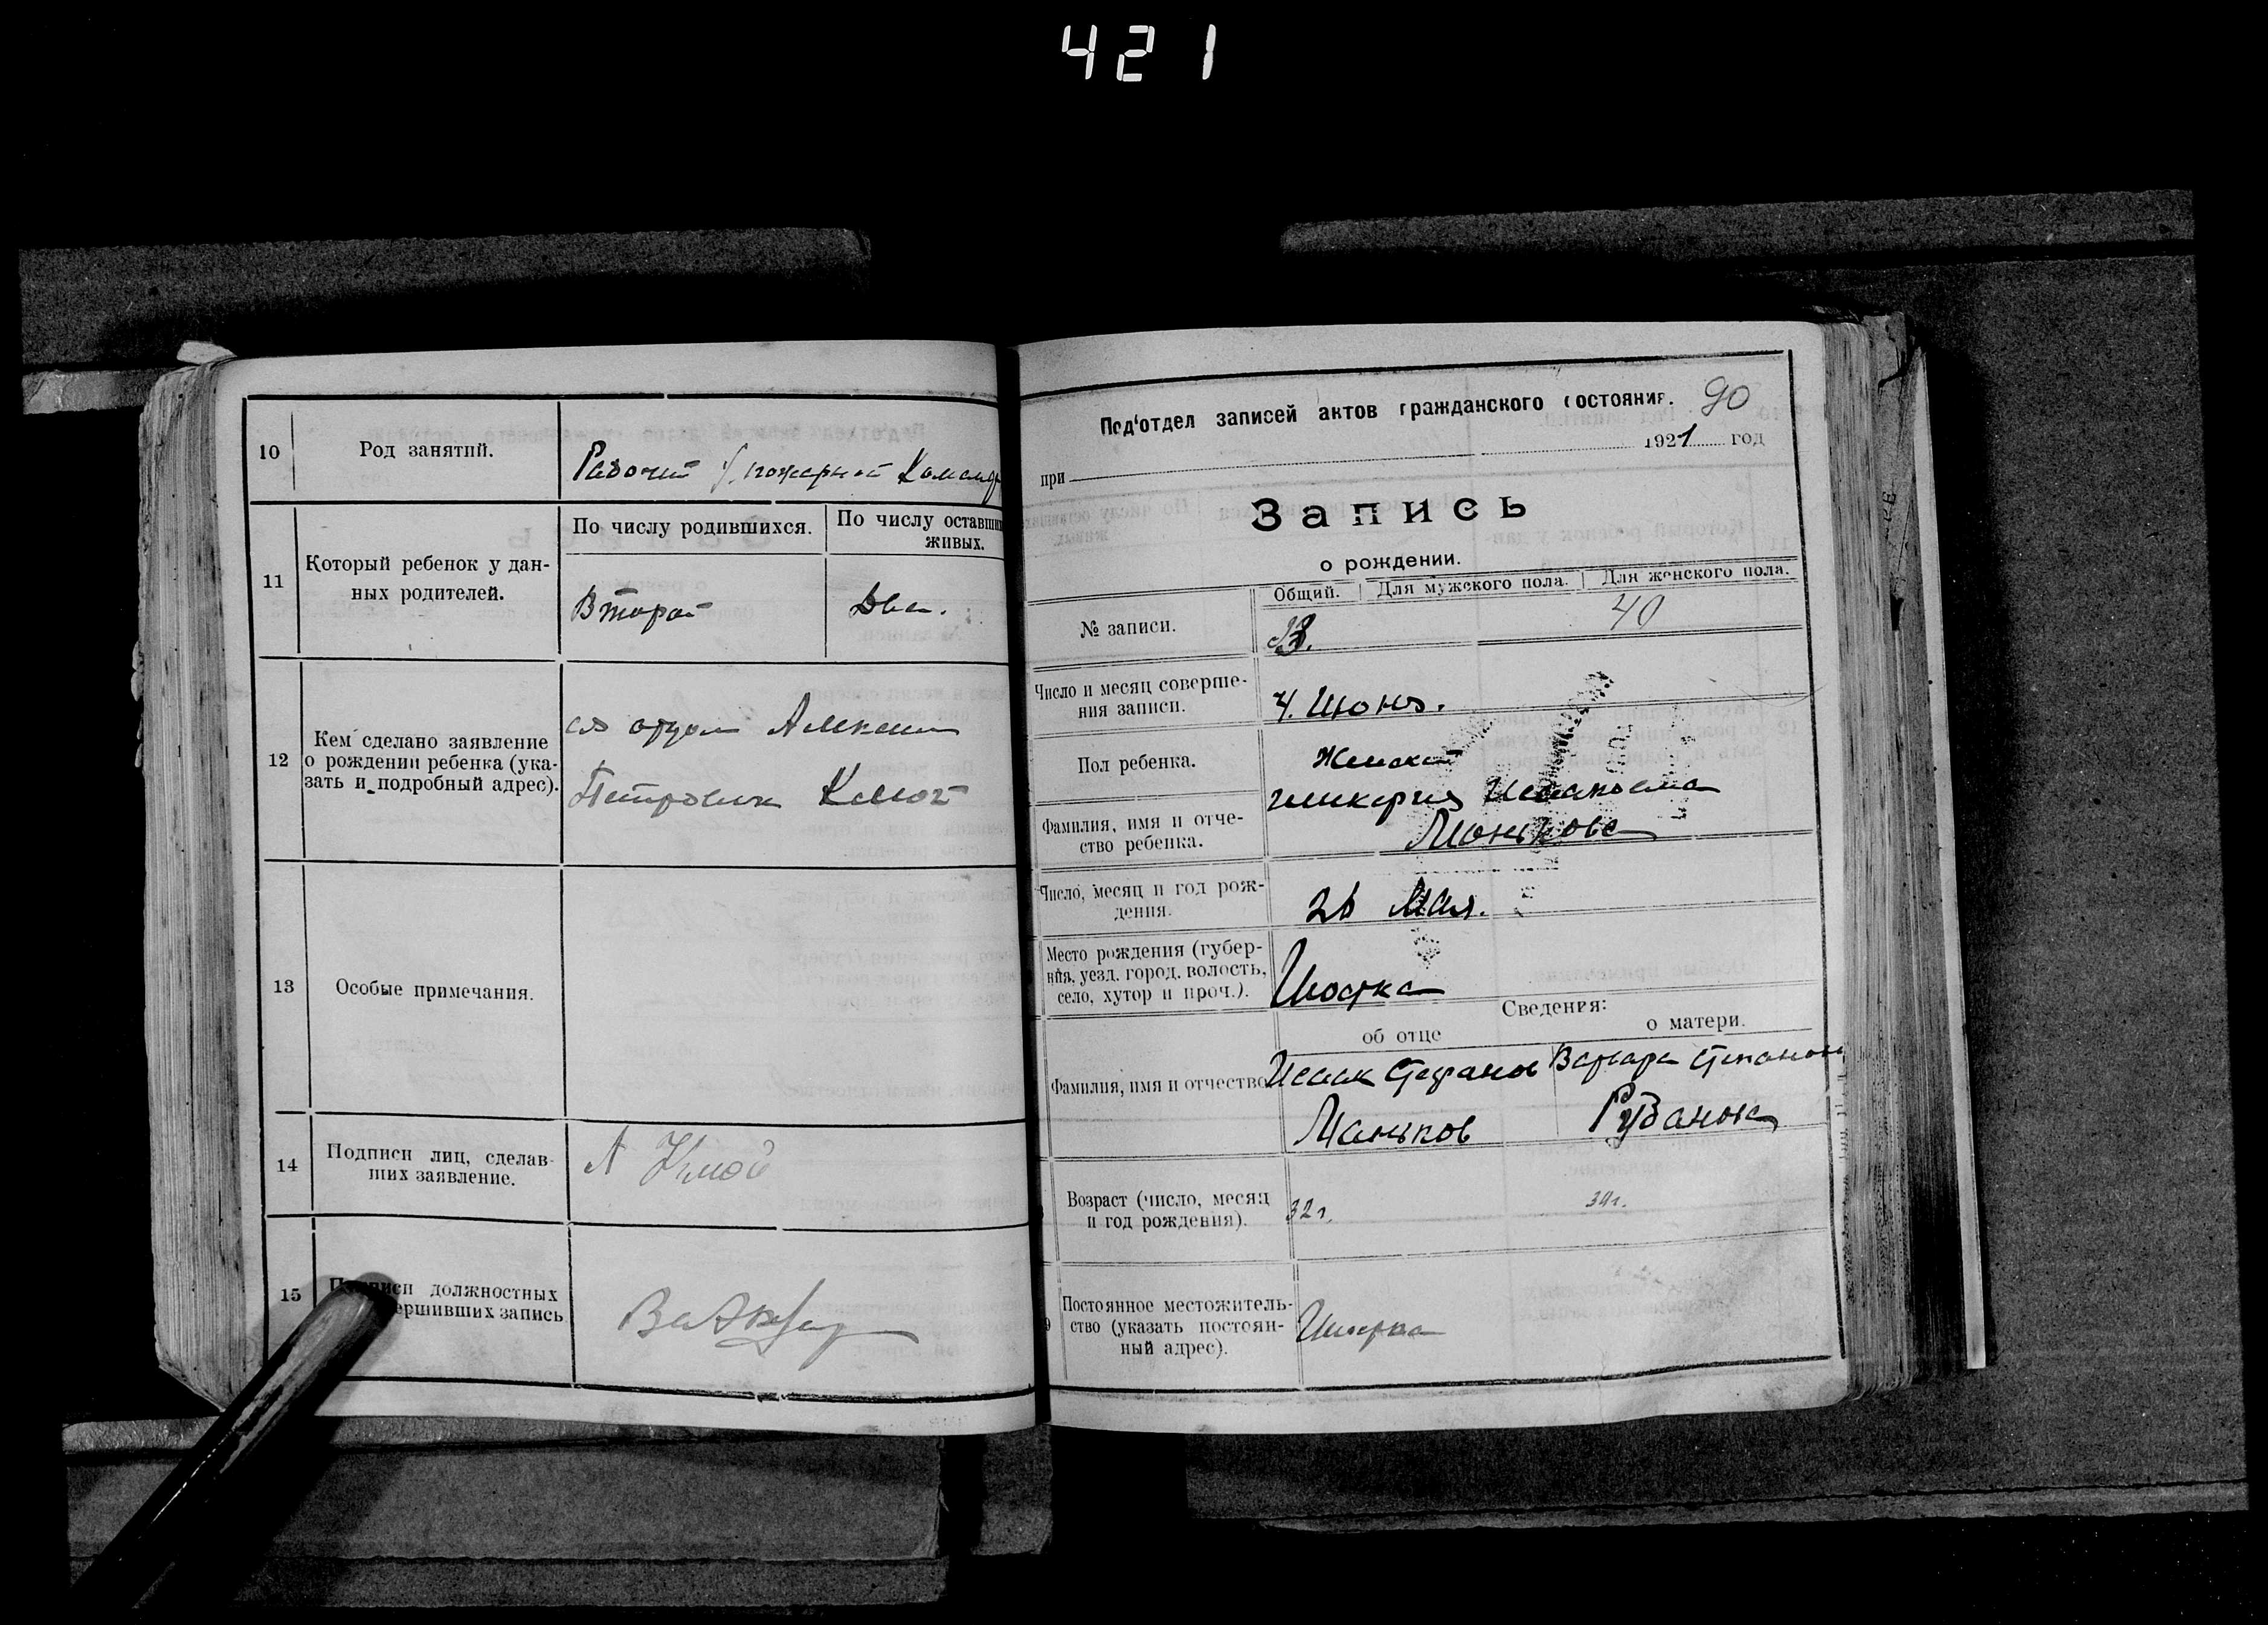 421
10
Род занятий.
Рабочий пожарной Команд
11
Который ребенок у дан-
ных родителей.
По числу родившихся.
По числу оставши
живых.
Второй
Два.
12
Кем сделано заявление
о рождении ребенка (ука-
зать и подробный адрес).
отцом
Петровичем
13
Особые примечания.
14
Подписи лиц, сделав-
ших заявление.
А
15
должностных
ершивших запись
Под'отдел записей актов гражданского состояния.
90
при
1921 год
Запись
о рождении.
№ записи.
Общий.
Для мужского пола.
Для женского пола.
40
Число и месяц соверше-
ния записи.
4. Июня.
Пол ребенка.
Женский
Фамилия, имя и отче-
ство ребенка.
Манькова
Число, месяц и год рож-
дения.
26 Мая.
Место рождения (губер-
ния, уезд, город, волость,
село, хутор и проч.).
Шостка
Сведения:
об отце
о матери.
Фамилия, имя и отчество
Исаак Стефанов
Маньков
Варвара Степанов
Рубанок
Возраст (число, месяц
и год рождения).
32 г.
34 г.
Постоянное местожитель-
ство (указать постоян-
ный адрес).
Шостка